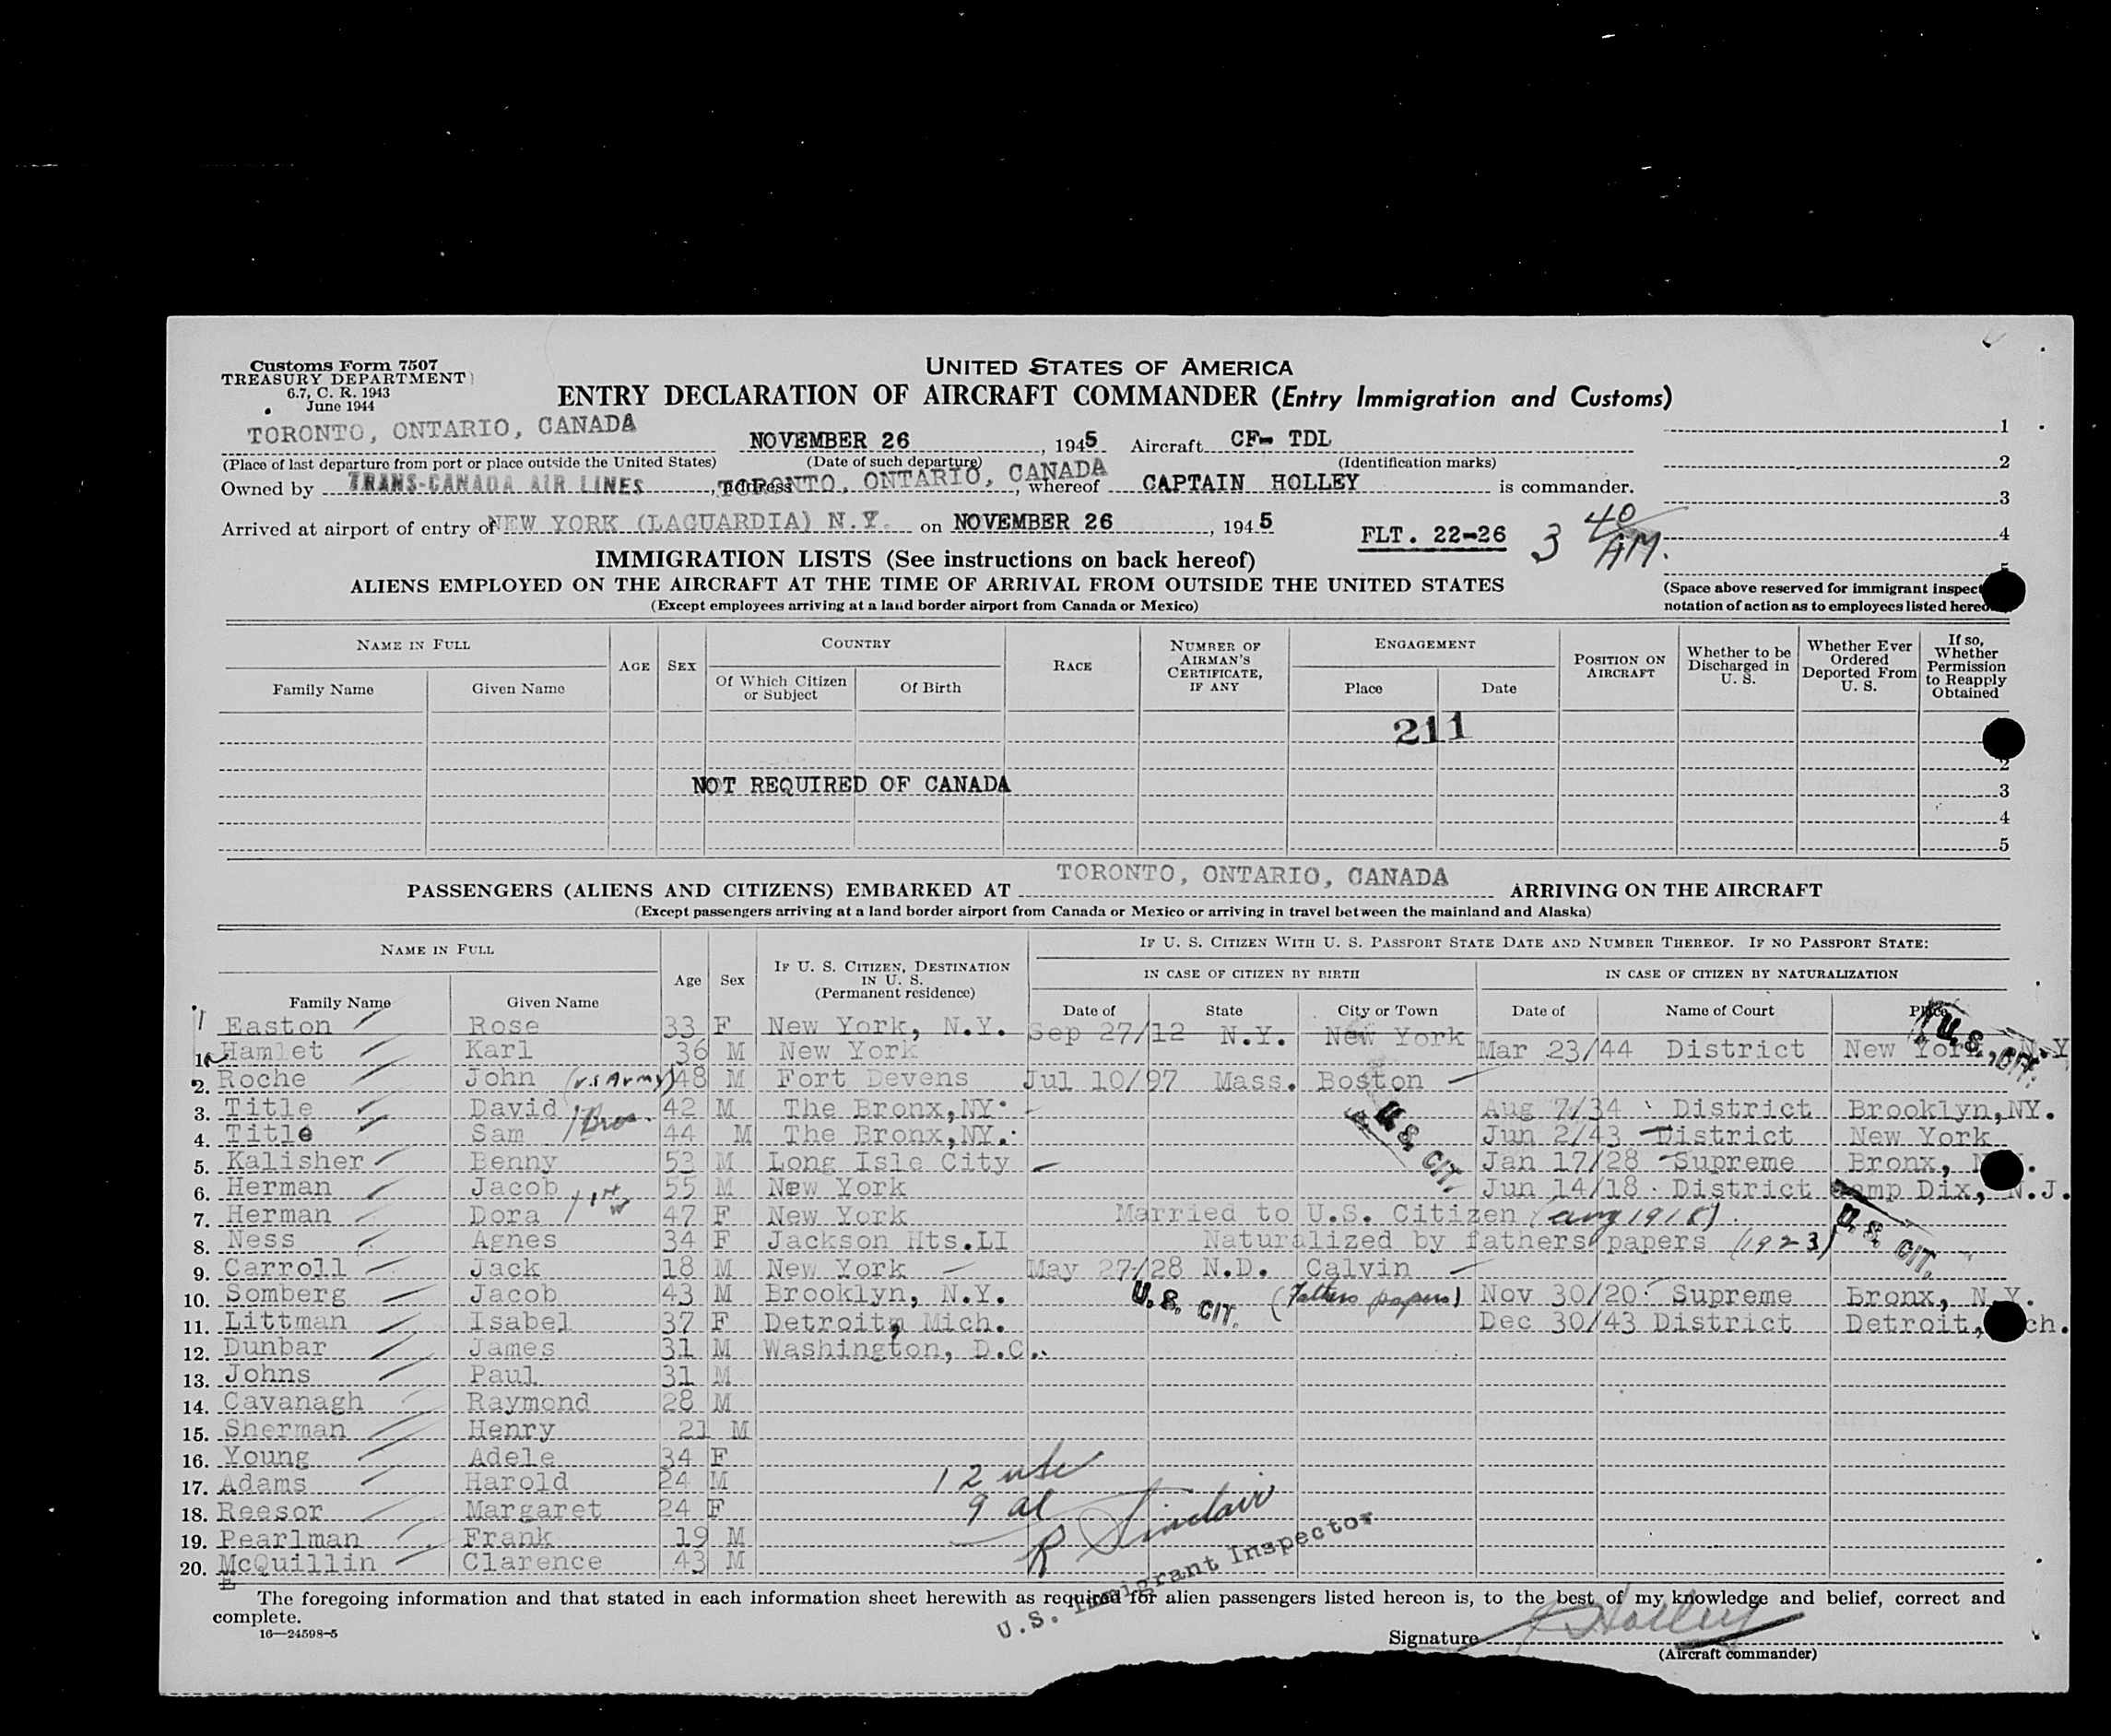 Customs Form 7507
TREASURY DEPARTMENT
6.7, C. R. 1943
June 1944
UNITED STATES OF AMERICA
ENTRY DECLARATION OF AIRCRAFT COMMANDER (Entry Immigration and Customs)
TORONTO, ONTARIO, CANADA NOVEMBER 26, 1945 Aircraft CF- TDL
(Place of last departure from port or place outside the United States) (Date of such departure) (Identification marks)
Owned by TRANS-CANADA AIR LINES, address TORONTO, ONTARIO, CANADA, whereof CAPTAIN HOLLEY is commander.
Arrived at airport of entry of NEW YORK (LAGUARDIA) N.Y. on NOVEMBER 26, 1945 FLT. 22-26 3 40 AM.
1
2
3
4
5
(Space above reserved for immigrant inspect
notation of action as to employees listed hereo
IMMIGRATION LISTS (See instructions on back hereof)
ALIENS EMPLOYED ON THE AIRCRAFT AT THE TIME OF ARRIVAL FROM OUTSIDE THE UNITED STATES
(Except employees arriving at a land border airport from Canada or Mexico)
NAME IN FULL AGE SEX COUNTRY RACE NUMBER OF AIRMAN'S CERTIFICATE, IF ANY ENGAGEMENT POSITION ON AIRCRAFT Whether to be Discharged in U. S. Whether Ever Ordered Deported From U. S. If so, Whether Permission to Reapply Obtained
Family Name Given Name Of Which Citizen or Subject Of Birth Place Date
211
2
NOT REQUIRED OF CANADA 3
4
5
PASSENGERS (ALIENS AND CITIZENS) EMBARKED AT TORONTO, ONTARIO, CANADA ARRIVING ON THE AIRCRAFT
(Except passengers arriving at a land border airport from Canada or Mexico or arriving in travel between the mainland and Alaska)
NAME IN FULL Age Sex IF U. S. CITIZEN, DESTINATION IN U. S. (Permanent residence) IF U. S. CITIZEN WITH U. S. PASSPORT STATE DATE AND NUMBER THEREOF. IF NO PASSPORT STATE:
IN CASE OF CITIZEN BY BIRTH IN CASE OF CITIZEN BY NATURALIZATION
Family Name Given Name Date of State City or Town Date of Name of Court Place
1 Easton Rose 33 F New York, N.Y. Sep 27/12 N.Y. New York U. S. CIT.
1. Hamlet Karl 36 M New York Mar 23/44 District New York, N.Y
2. Roche John (U.S Army) 48 M Fort Devens Jul 10/97 Mass. Boston
3. Title David 42 M The Bronx, NY. Aug 7/34 District Brooklyn, NY.
4. Title Sam Bros. 44 M The Bronx, NY. Jun 2/43 District New York
U. S. CIT.
5. Kalisher Benny 53 M Long Isle City Jan 17/28 Supreme Bronx, N.
6. Herman Jacob 55 M New York Jun 14/18 District Camp Dix, N.J.
7. Herman Dora 47 F New York Married to U.S. Citizen (aug 1918)
8. Ness Agnes 34 F Jackson Hts.LI Naturalized by fathers papers (1923)
U. S. CIT.
9. Carroll Jack 18 M New York May 27/28 N.D. Calvin
10. Somberg Jacob 43 M Brooklyn, N.Y. U. S. CIT. (Fathers papers) Nov 30/20 Supreme Bronx, N.Y.
11. Littman Isabel 37 F Detroit, Mich. Dec 30/43 District Detroit, ch.
12. Dunbar James 31 M Washington, D.C.
13. Johns Paul 31 M
14. Cavanagh Raymond 28 M
15. Sherman Henry 21 M
16. Young Adele 34 F
17. Adams Harold 24 M 12 usc
18. Reesor Margaret 24 F 9 al
19. Pearlman Frank 19 M R Sinclair
20. McQuillin Clarence 43 M
U.S. Immigrant Inspector
The foregoing information and that stated in each information sheet herewith as required for alien passengers listed hereon is, to the best of my knowledge and belief, correct and
complete.
16—24598-5
Signature Holley
(Aircraft commander)